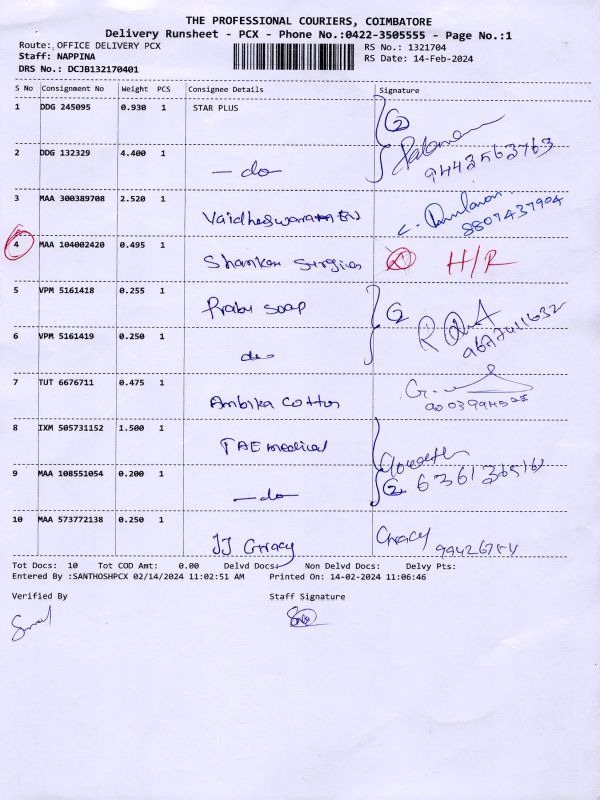 THE PROFESSIONAL COURIERS, COIMBATORE
Delivery Runsheet - PCX - Phone No.:0422-3505555 - Page No.:1
Route: OFFICE DELIVERY PCX RS No.: 1321704
Staff: NAPPINA RS Date: 14-Feb-2024
DRS No.: DCJB132170401
S No Consignment No Weight PCS Consignee Details Signature
1 DDG 245095 0.930 1 STAR PLUS
2 DDG 132329 4.400 1 -do- 9443563763
3 MAA 300389708 2.520 1 8807437904
4 MAA 104002420 0.495 1 H/R
5 VPM 5161418 0.255 1 Prabu soap
6 VPM 5161419 0.250 1 do
7 TUT 6676711 0.475 1 Ambika Cotton G.
8 IXM 505731152 1.500 1 TAE medical
9 MAA 108551054 0.200 1 -do-
10 MAA 573772138 0.250 1 JJ Gracy Gracy
Tot Docs: 10 Tot COD Amt: 0.00 Delvd Docs: Non Delvd Docs: Delvy Pts:
Entered By :SANTHOSHPCX 02/14/2024 11:02:51 AM Printed On: 14-02-2024 11:06:46
Verified By Staff Signature